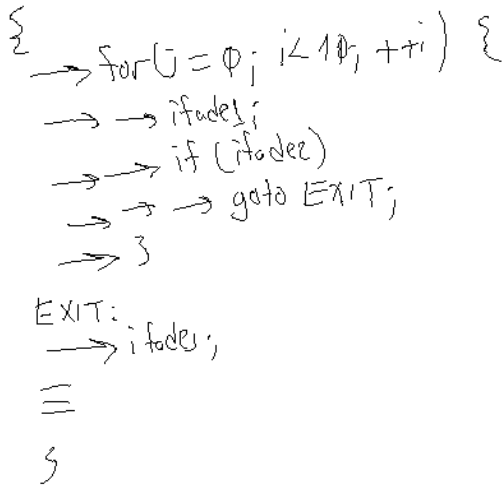 {
→ for(i = 0; i < 10; ++i) {
→ → ifade1;
→ → if (ifade2)
→ → → goto EXIT;
→ }
EXIT:
→ ifade3;
}